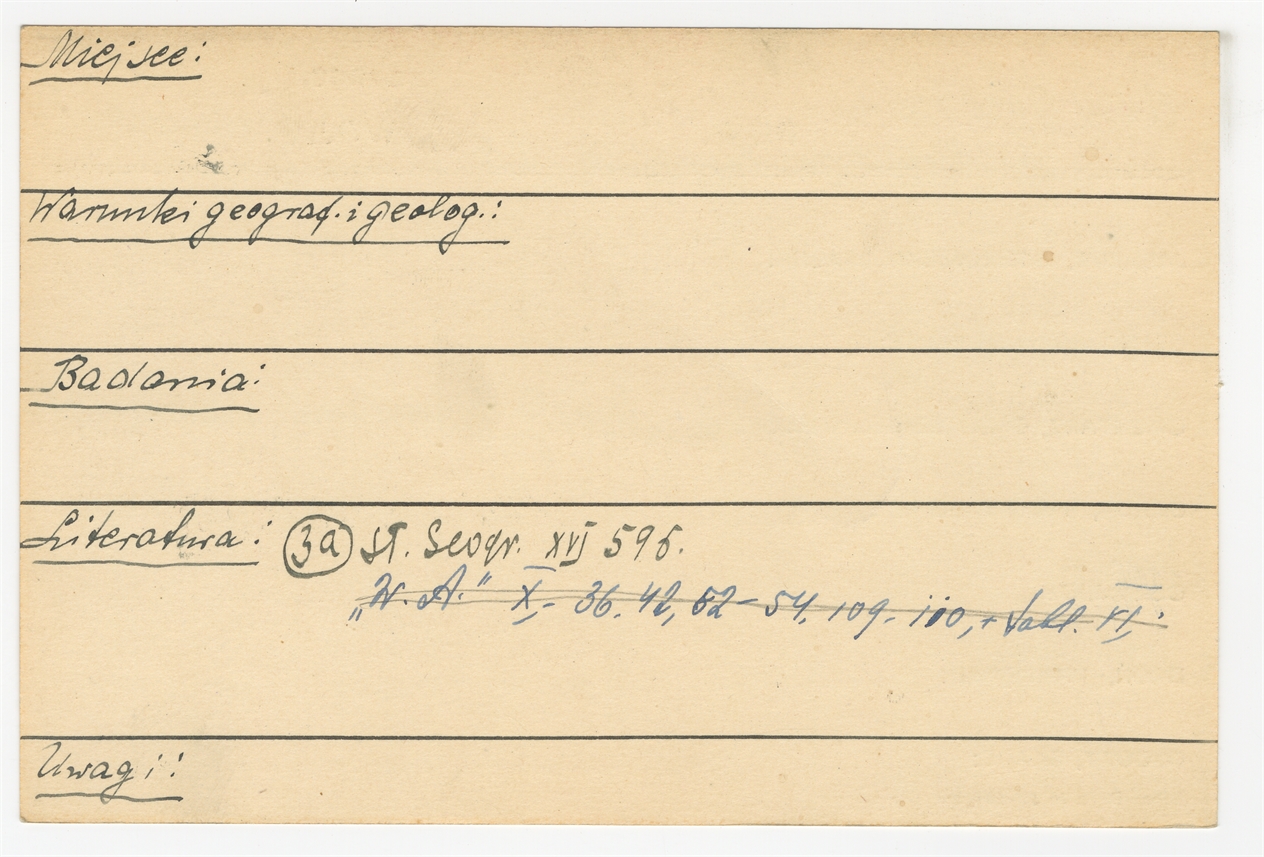 Miejsce:
Warunki geograf. i geolog.:
Badania:
Literatura: (3a) Sł. Geogr. XVI 596.
„W. A." X, - 36. 42, 52 - 54. 109 - 110, + tabl. VI.
Uwagi: